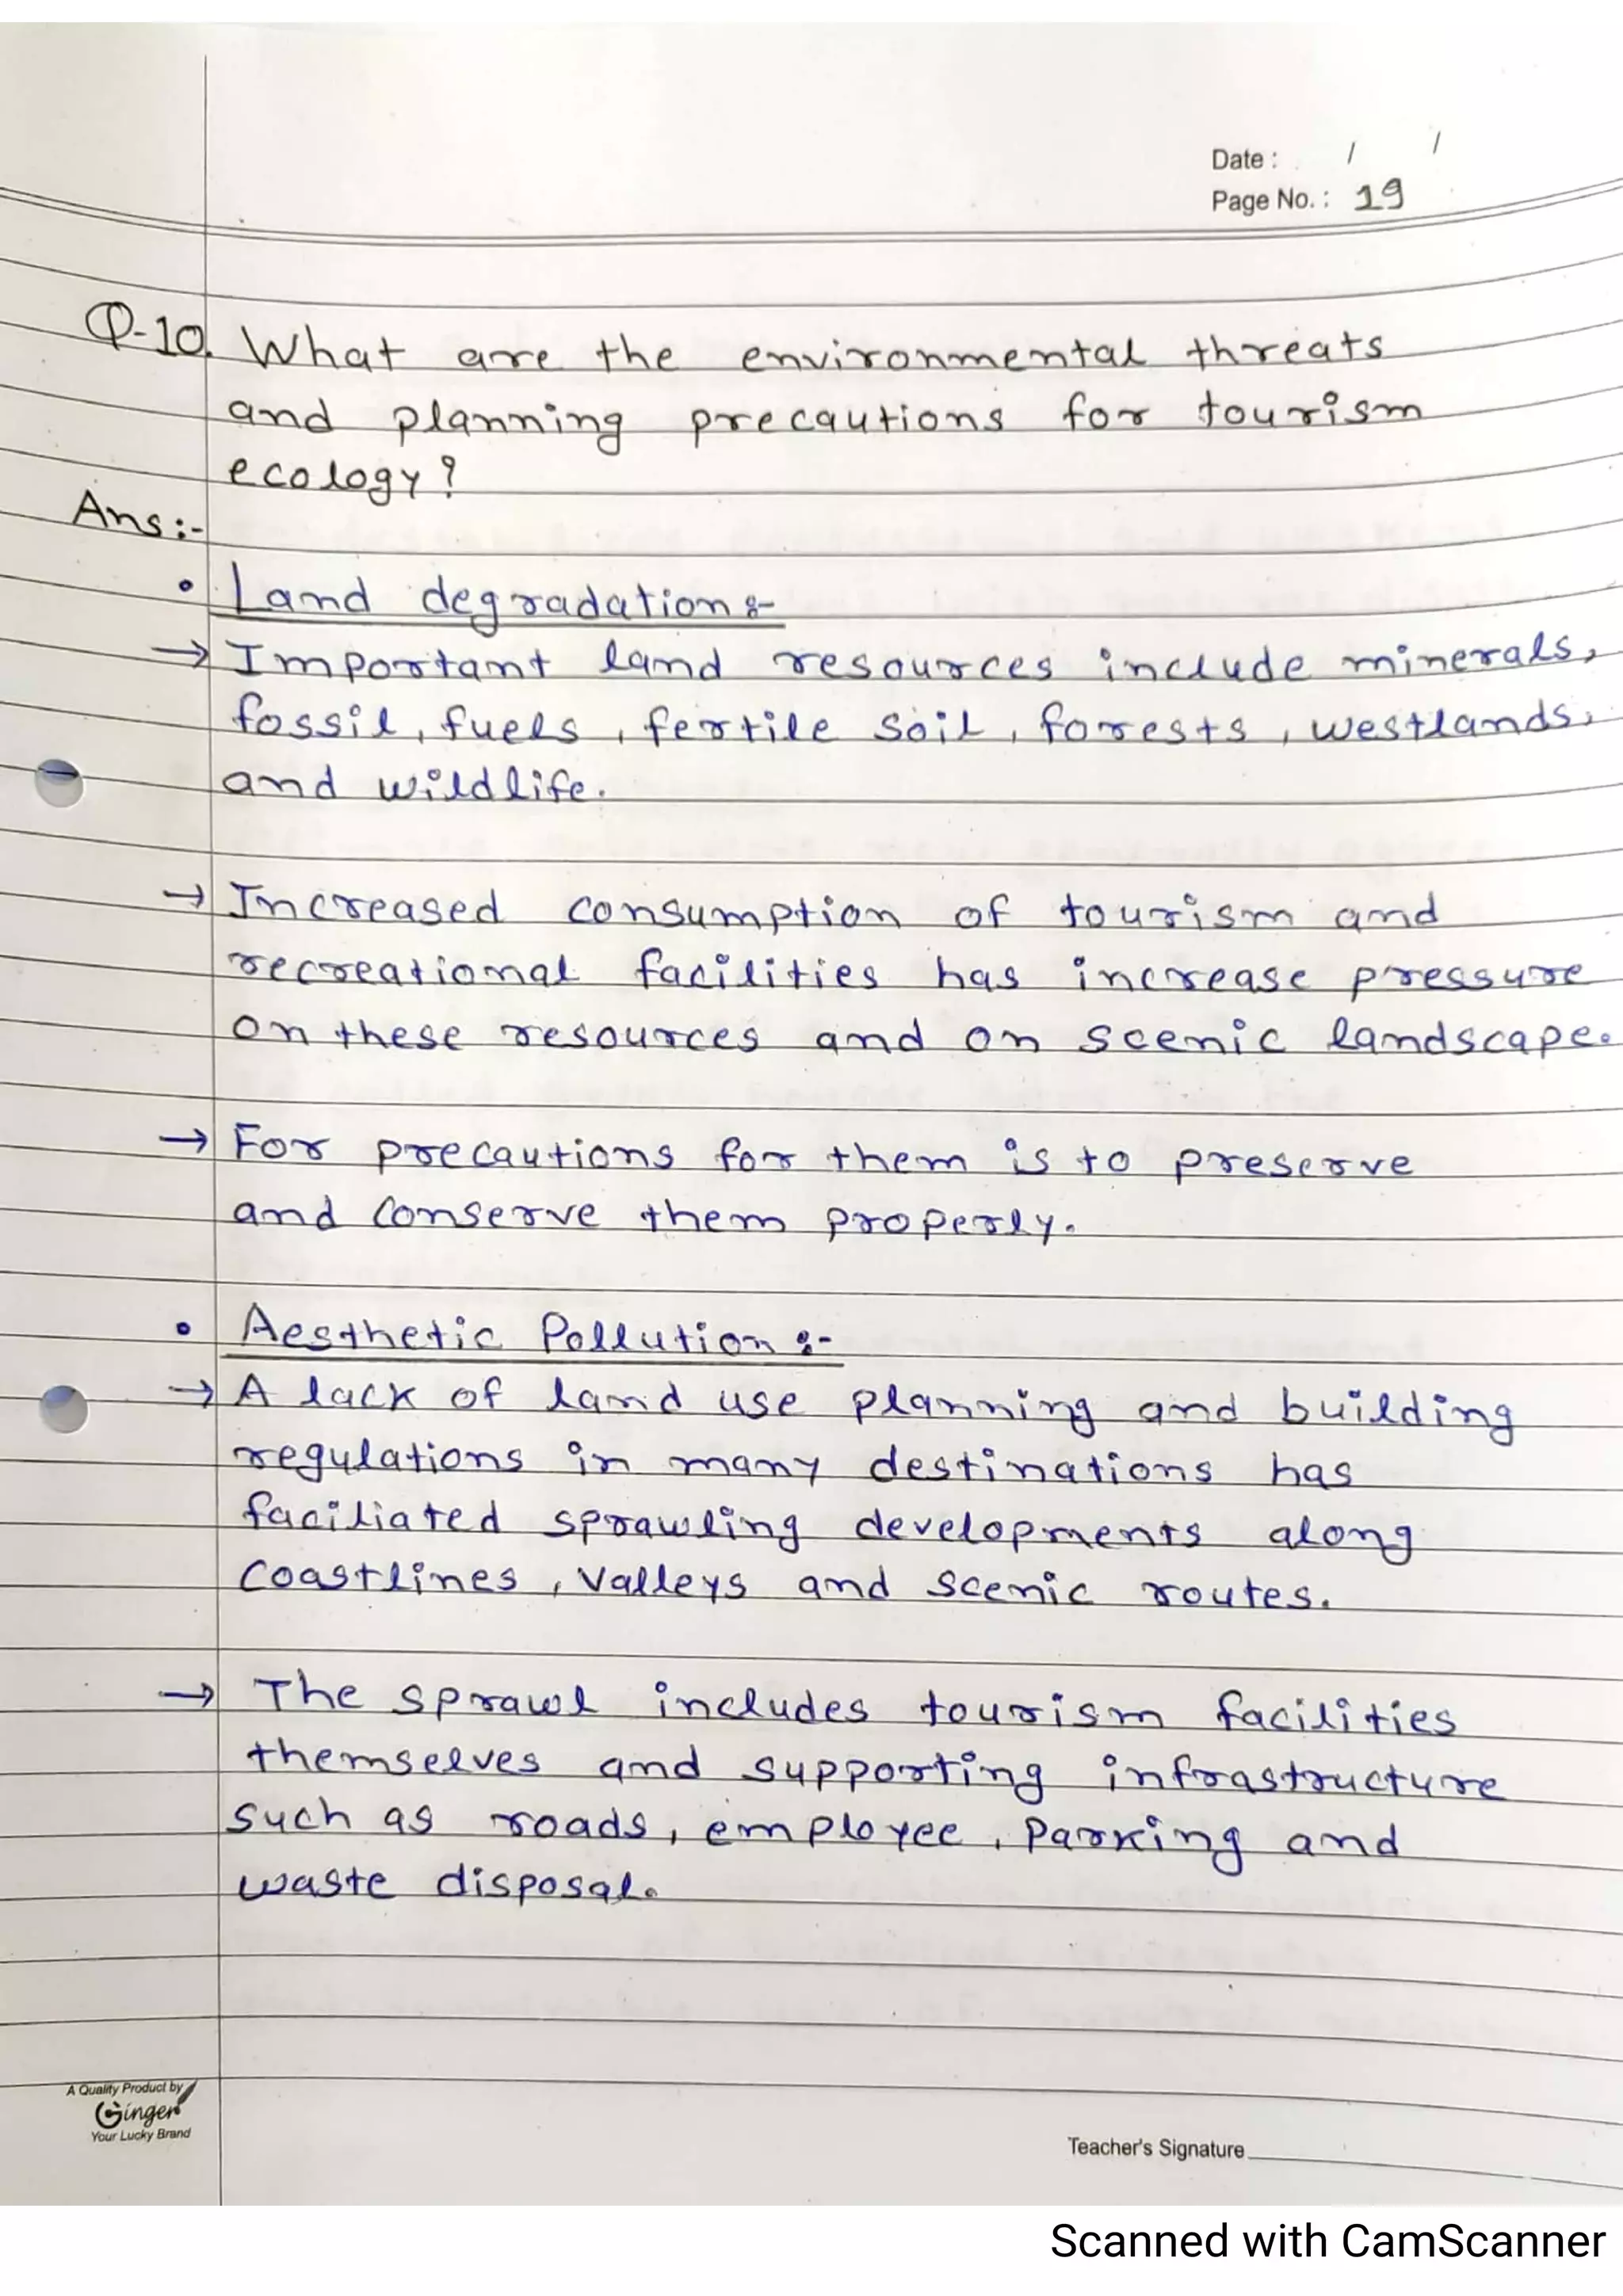 Date : / /
Page No. : 19
Q-10. What are the environmental threats
and planning precautions for tourism
ecology?
Ans:-
• Land degradation:-
→ Important land resources include minerals,
fossil, fuels, fertile soil, forests, westlands,
and wildlife.
→ Increased consumption of tourism and
recreational facilities has increase pressure
on these resources and on scenic landscape.
→ For precautions for them is to preserve
and conserve them properly.
• Aesthetic Pollution:-
→ A lack of land use planning and building
regulations in many destinations has
faciliated sprawling developments along
coastlines, valleys and scenic routes.
→ The sprawl includes tourism facilities
themselves and supporting infrastructure
such as roads, employee, parking and
waste disposal.
A Quality Product by
Ginger
Your Lucky Brand
Teacher's Signature
Scanned with CamScanner